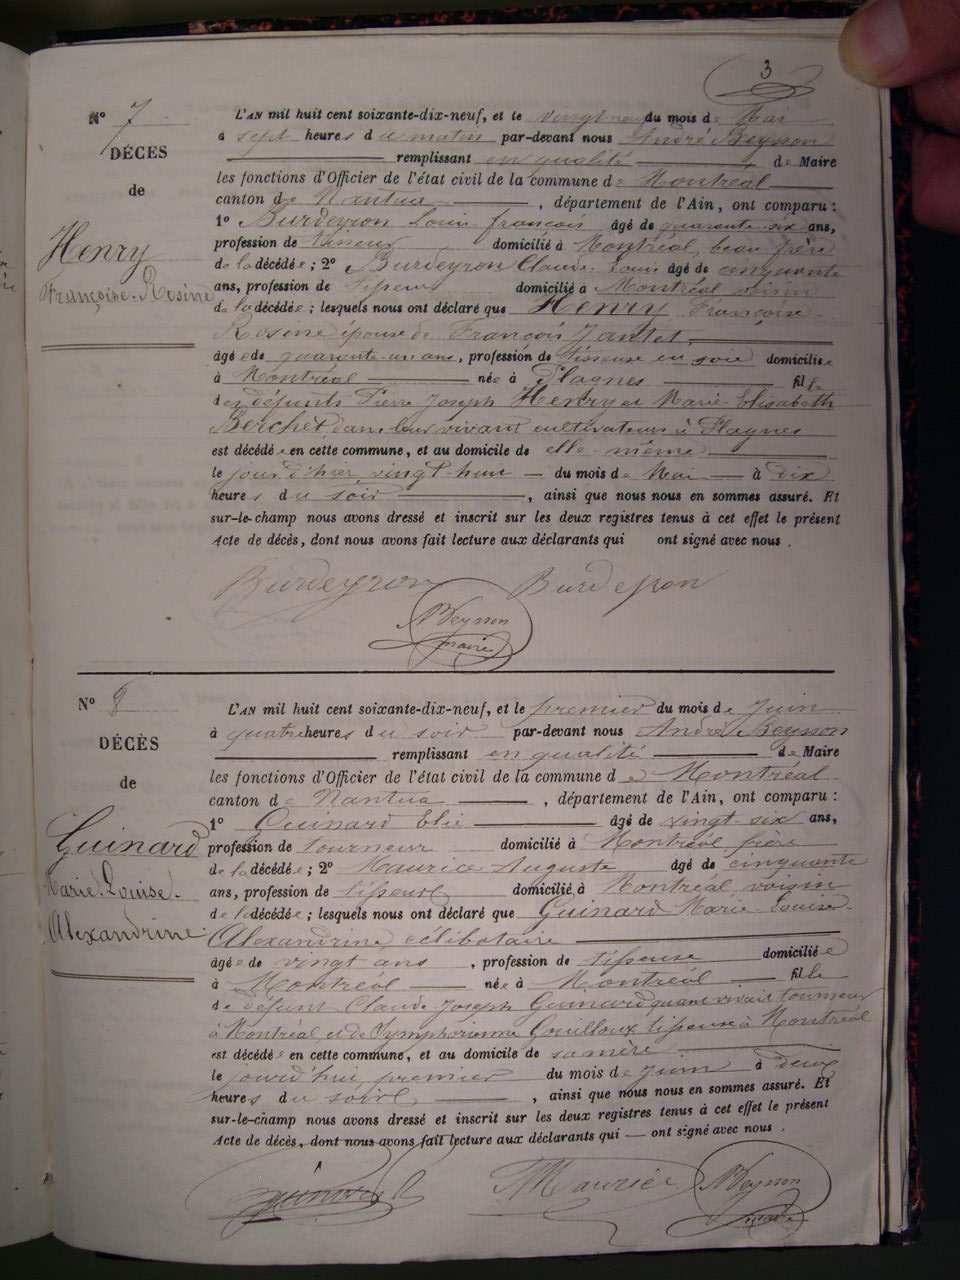 3
N° 7
DÉCES
de
Henry
Françoise-Rosine
L'AN mil huit cent soixante-dix-neuf, et le vingt neuf du mois de Mai
à sept heures du matin par-devant nous André Beysson
remplissant en qualité de Maire
les fonctions d'Officier de l'état civil de la commune de Montréal
canton de Nantua, département de l'Ain, ont comparu :
1° Burdeyron Louis françois âgé de quarante-six ans,
profession de domicilié à Montréal, beau frère
de la décédée ; 2° Burdeyron Claude Louis âgé de cinquante
ans, profession de tisseur domicilié à Montréal voisin
de la décédée ; lesquels nous ont déclaré que Henry Françoise-
Rosine épouse de François Jantet,
âgée de quarante-un ans, profession de tisseuse en soie domiciliée
à Montréal née à Plagnes fille
des défunts Pierre Joseph Henry et Marie Elisabeth
Berchet, dans leur vivant cultivateurs à Plagnes
est décédée en cette commune, et au domicile de elle-même
le jour d'hier vingt-huit du mois de Mai à dix
heures du soir, ainsi que nous nous en sommes assuré. Et
sur-le-champ nous avons dressé et inscrit sur les deux registres tenus à cet effet le présent
Acte de décès, dont nous avons fait lecture aux déclarants qui ont signé avec nous.
Burdeyron Burdeyron
A Beysson
maire
N° 8
DÉCÈS
de
Guinard
Marie-Louise-
Alexandrine
L'AN mil huit cent soixante-dix-neuf, et le premier du mois de Juin
à quatre heures du soir par-devant nous André Beysson
remplissant en qualité de Maire
les fonctions d'Officier de l'état civil de la commune de Montréal
canton de Nantua, département de l'Ain, ont comparu :
1° Guinard Elie âgé de vingt-six ans,
profession de tourneur domicilié à Montréal frère
de la décédée ; 2° Maurice Auguste âgé de cinquante
ans, profession de tisseur domicilié à Montréal voisin
de la décédée ; lesquels nous ont déclaré que Guinard Marie-Louise-
Alexandrine, célibataire
âgée de vingt ans, profession de tisseuse domiciliée
à Montréal née à Montréal fille
de défunt Claude Joseph Guinard quand vivait tourneur
à Montréal, et de Symphorienne Gouilloux tisseuse à Montréal
est décédée en cette commune, et au domicile de sa mère
le jourd'hui premier du mois de Juin à deux
heures du soir, ainsi que nous nous en sommes assuré. Et
sur-le-champ nous avons dressé et inscrit sur les deux registres tenus à cet effet le présent
Acte de décès, dont nous avons fait lecture aux déclarants qui ont signé avec nous.
Guinard Maurice A Beysson
maire